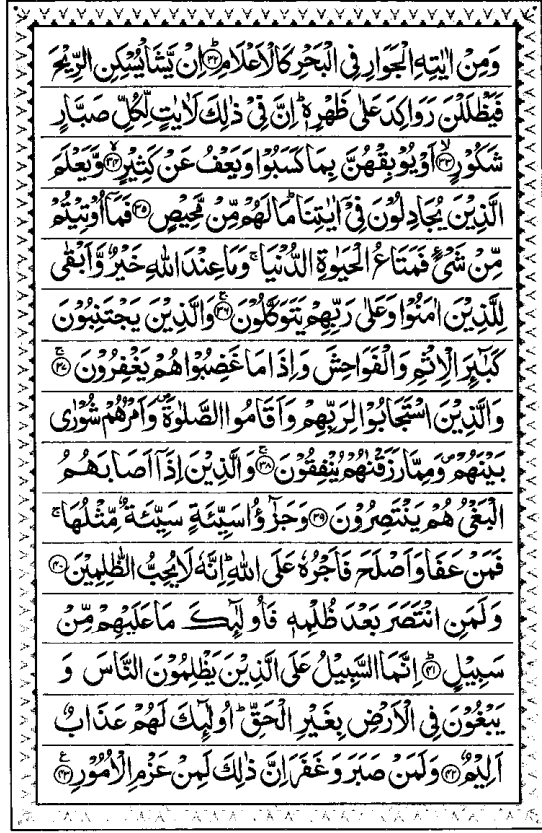 وَمِنْ اٰيٰتِهِ الْجَوَارِ فِي الْبَحْرِ كَالْاَعْلَامِ ؕ﴿۳۲﴾ اِنْ يَّشَاْ يُسْكِنِ الرِّيْحَ
فَيَظْلَلْنَ رَوَاكِدَ عَلٰى ظَهْرِهٖ ؕ اِنَّ فِيْ ذٰلِكَ لَاٰيٰتٍ لِّكُلِّ صَبَّارٍ
شَكُوْرٍ ۙ﴿۳۳﴾ اَوْ يُوْبِقْهُنَّ بِمَا كَسَبُوْا وَيَعْفُ عَنْ كَثِيْرٍ ۙ﴿۳۴﴾ وَّيَعْلَمَ
الَّذِيْنَ يُجَادِلُوْنَ فِيْٓ اٰيٰتِنَا ؕ مَا لَهُمْ مِّنْ مَّحِيْصٍ ﴿۳۵﴾ فَمَآ اُوْتِيْتُمْ
مِّنْ شَيْءٍ فَمَتَاعُ الْحَيٰوةِ الدُّنْيَا ۚ وَمَا عِنْدَ اللّٰهِ خَيْرٌ وَّاَبْقٰى
لِلَّذِيْنَ اٰمَنُوْا وَعَلٰى رَبِّهِمْ يَتَوَكَّلُوْنَ ۚ﴿۳۶﴾ وَالَّذِيْنَ يَجْتَنِبُوْنَ
كَبٰٓئِرَ الْاِثْمِ وَالْفَوَاحِشَ وَاِذَا مَا غَضِبُوْا هُمْ يَغْفِرُوْنَ ۚ﴿۳۷﴾
وَالَّذِيْنَ اسْتَجَابُوْا لِرَبِّهِمْ وَاَقَامُوا الصَّلٰوةَ ۪ وَاَمْرُهُمْ شُوْرٰى
بَيْنَهُمْ ۪ وَمِمَّا رَزَقْنٰهُمْ يُنْفِقُوْنَ ۚ﴿۳۸﴾ وَالَّذِيْنَ اِذَآ اَصَابَهُمُ
الْبَغْيُ هُمْ يَنْتَصِرُوْنَ ﴿۳۹﴾ وَجَزٰٓؤُا سَيِّئَةٍ سَيِّئَةٌ مِّثْلُهَا ۚ
فَمَنْ عَفَا وَاَصْلَحَ فَاَجْرُهٗ عَلَى اللّٰهِ ؕ اِنَّهٗ لَا يُحِبُّ الظّٰلِمِيْنَ ﴿۴۰﴾
وَلَمَنِ انْتَصَرَ بَعْدَ ظُلْمِهٖ فَاُولٰٓئِكَ مَا عَلَيْهِمْ مِّنْ
سَبِيْلٍ ؕ﴿۴۱﴾ اِنَّمَا السَّبِيْلُ عَلَى الَّذِيْنَ يَظْلِمُوْنَ النَّاسَ وَ
يَبْغُوْنَ فِي الْاَرْضِ بِغَيْرِ الْحَقِّ ؕ اُولٰٓئِكَ لَهُمْ عَذَابٌ
اَلِيْمٌ ﴿۴۲﴾ وَلَمَنْ صَبَرَ وَغَفَرَ اِنَّ ذٰلِكَ لَمِنْ عَزْمِ الْاُمُوْرِ ﴿۴۳﴾ ع